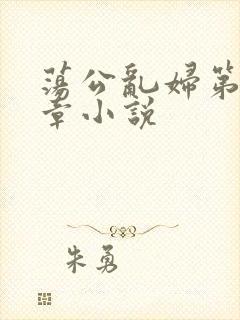 蕩公亂婦第
章小說
朱勇